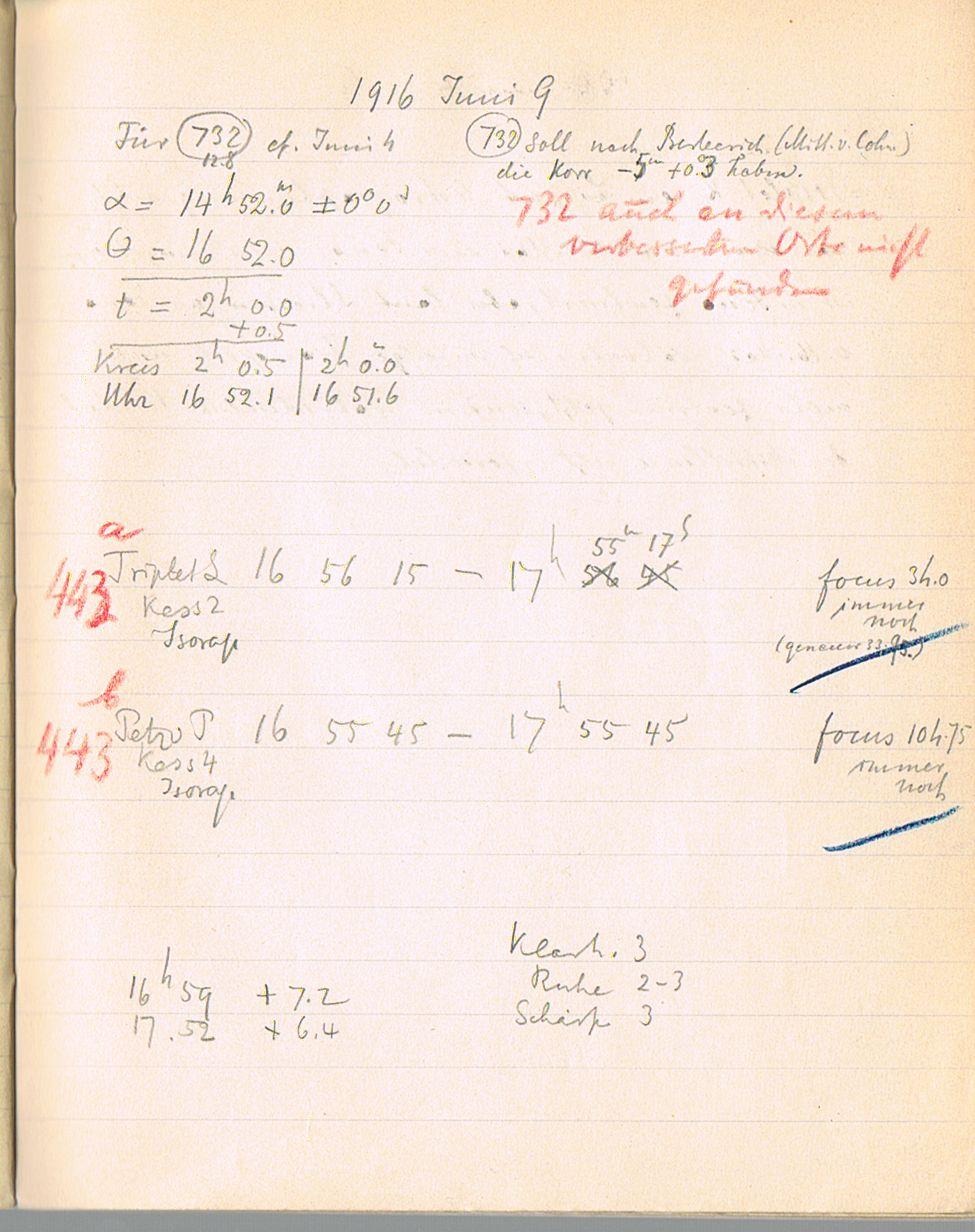 1916 Juni 9
Für 732 cf. Juni 4
12.8
732 soll nach Berberich (Mitt. v. Cohn)
die Korr -5ᵐ +0.3 haben.
α = 14ʰ 52.ᵐ0 ±0° 0'
732 auch an diesem
verbesserten Orte nicht
gefunden
θ = 16 52.0
t = 2ʰ 0.0
+0.5
Kreis 2ʰ 0.5 | 2ʰ 0.0
Uhr 16 52.1 | 16 51.6
a
55ᵐ 17ˢ
443 Triplet 16 56 15 – 17ʰ focus 34.0
Kass 2 immer
Isorap noch
(genauer 33.95.)
b
443 Petzv P 16 55 45 – 17ʰ 55 45 focus 104.75
Kass 4 immer
Isorap noch
Klarh. 3
16ʰ 59 + 7.2 Ruhe 2-3
17.52 + 6.4 Schärfe 3